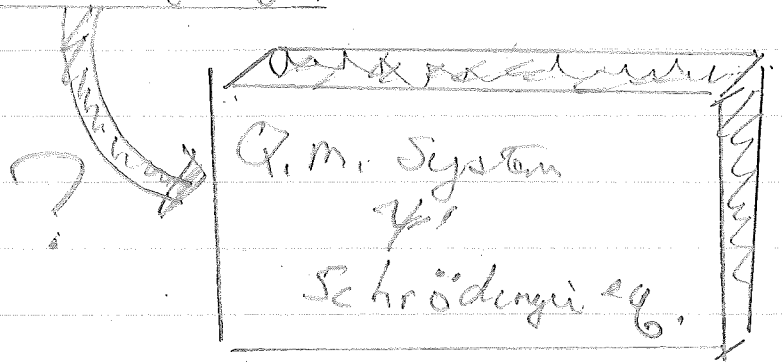 ?
Q.M. System
ψ
Schrödinger eq.